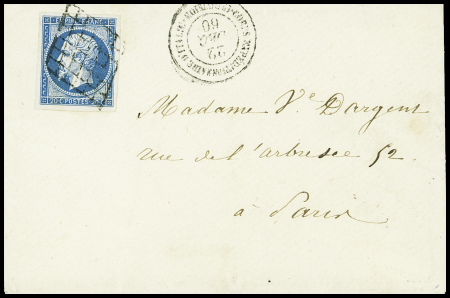 EMPIRE FRANC.
20 C. POSTES 20 C.
22
60
Madame Ve Dargent
rue de l'arbresec 52.
à Paris